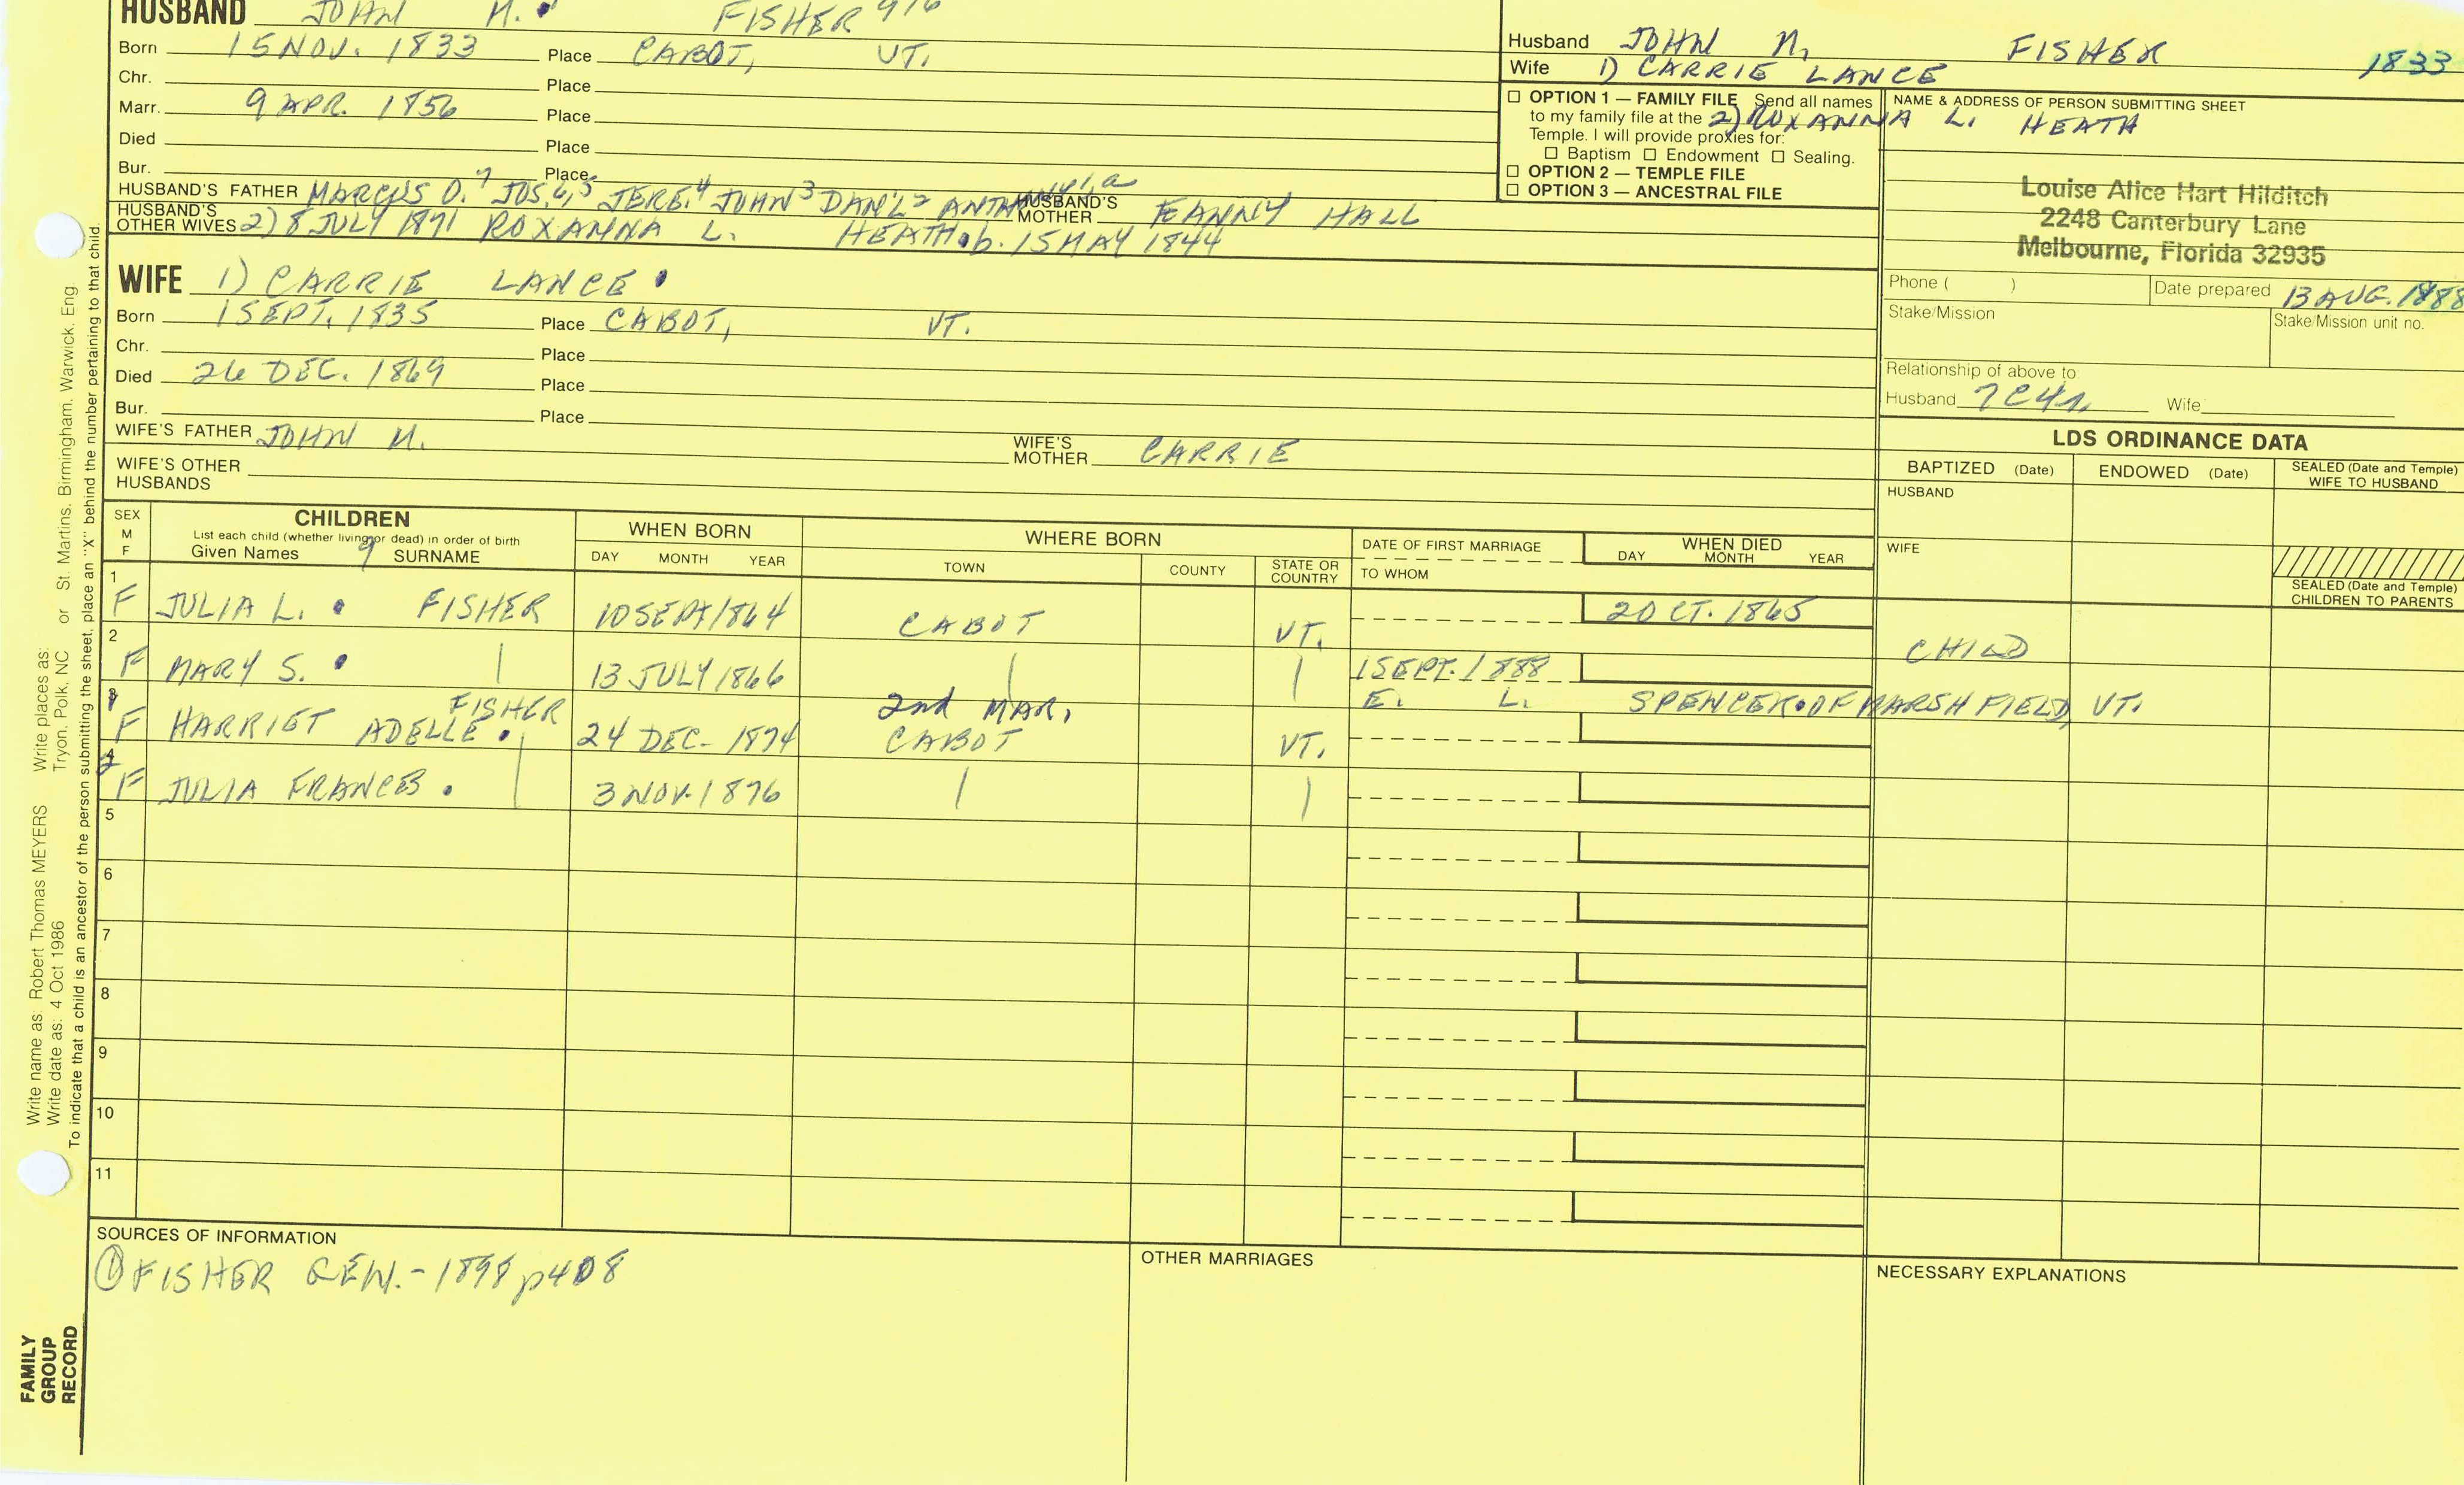 HUSBAND JOHN M. FISHER
Born 15 NOV. 1833 Place CABOT, VT.
Chr. Place
Marr. 9 APR. 1856 Place
Died Place
Bur. Place
HUSBAND'S FATHER MARCUS O.7 JOS.6,5 JERE.4 JOHN3 DAN'L2 HUSBAND'S MOTHER FANNY HALL
HUSBAND'S OTHER WIVES 2) 8 JULY 1871 ROXANNA L. HEATH b. 15 MAY 1844
WIFE 1) CARRIE LANCE
Born 1 SEPT. 1835 Place CABOT, VT.
Chr. Place
Died 26 DEC. 1869 Place
Bur. Place
WIFE'S FATHER JOHN M. WIFE'S MOTHER CARRIE
WIFE'S OTHER HUSBANDS
Husband JOHN M. FISHER 1833
Wife 1) CARRIE LANCE
☐ OPTION 1 — FAMILY FILE Send all names
to my family file at the
2) ROXANNA L. HEATH
Temple. I will provide proxies for:
☐ Baptism ☐ Endowment ☐ Sealing.
☐ OPTION 2 — TEMPLE FILE
☐ OPTION 3 — ANCESTRAL FILE
NAME & ADDRESS OF PERSON SUBMITTING SHEET
Louise Alice Hart Hilditch
2248 Canterbury Lane
Melbourne, Florida 32935
Phone ( ) Date prepared 13 AUG. 1988
Stake/Mission Stake/Mission unit no.
Relationship of above to:
Husband 7C4r Wife
LDS ORDINANCE DATA
BAPTIZED (Date) ENDOWED (Date) SEALED (Date and Temple) WIFE TO HUSBAND
HUSBAND
WIFE
SEALED (Date and Temple) CHILDREN TO PARENTS
SEX M F
CHILDREN
List each child (whether living or dead) in order of birth
Given Names 9 SURNAME
WHEN BORN
DAY MONTH YEAR
WHERE BORN
TOWN COUNTY STATE OR COUNTRY
DATE OF FIRST MARRIAGE
TO WHOM
WHEN DIED
DAY MONTH YEAR
1 F JULIA L. FISHER 10 SEPT 1864 CABOT VT. 2 OCT. 1865 CHILD
2 F MARY S. 13 JULY 1866 1 SEPT. 1888
E. L. SPENCER OF MARSHFIELD, VT.
2nd MAR.
3 F HARRIET ADELLE FISHER 24 DEC. 1874 CABOT VT.
4 F JULIA FRANCES 3 NOV. 1876
5
6
7
8
9
10
11
SOURCES OF INFORMATION
① FISHER GEN.-1898 p408
OTHER MARRIAGES
NECESSARY EXPLANATIONS
Write name as: Robert Thomas MEYERS Write places as:
Write date as: 4 Oct 1986 Tryon, Polk, NC or St. Martins, Birmingham, Warwick, Eng
To indicate that a child is an ancestor of the person submitting the sheet, place an "X" behind the number pertaining to that child.
FAMILY
GROUP
RECORD